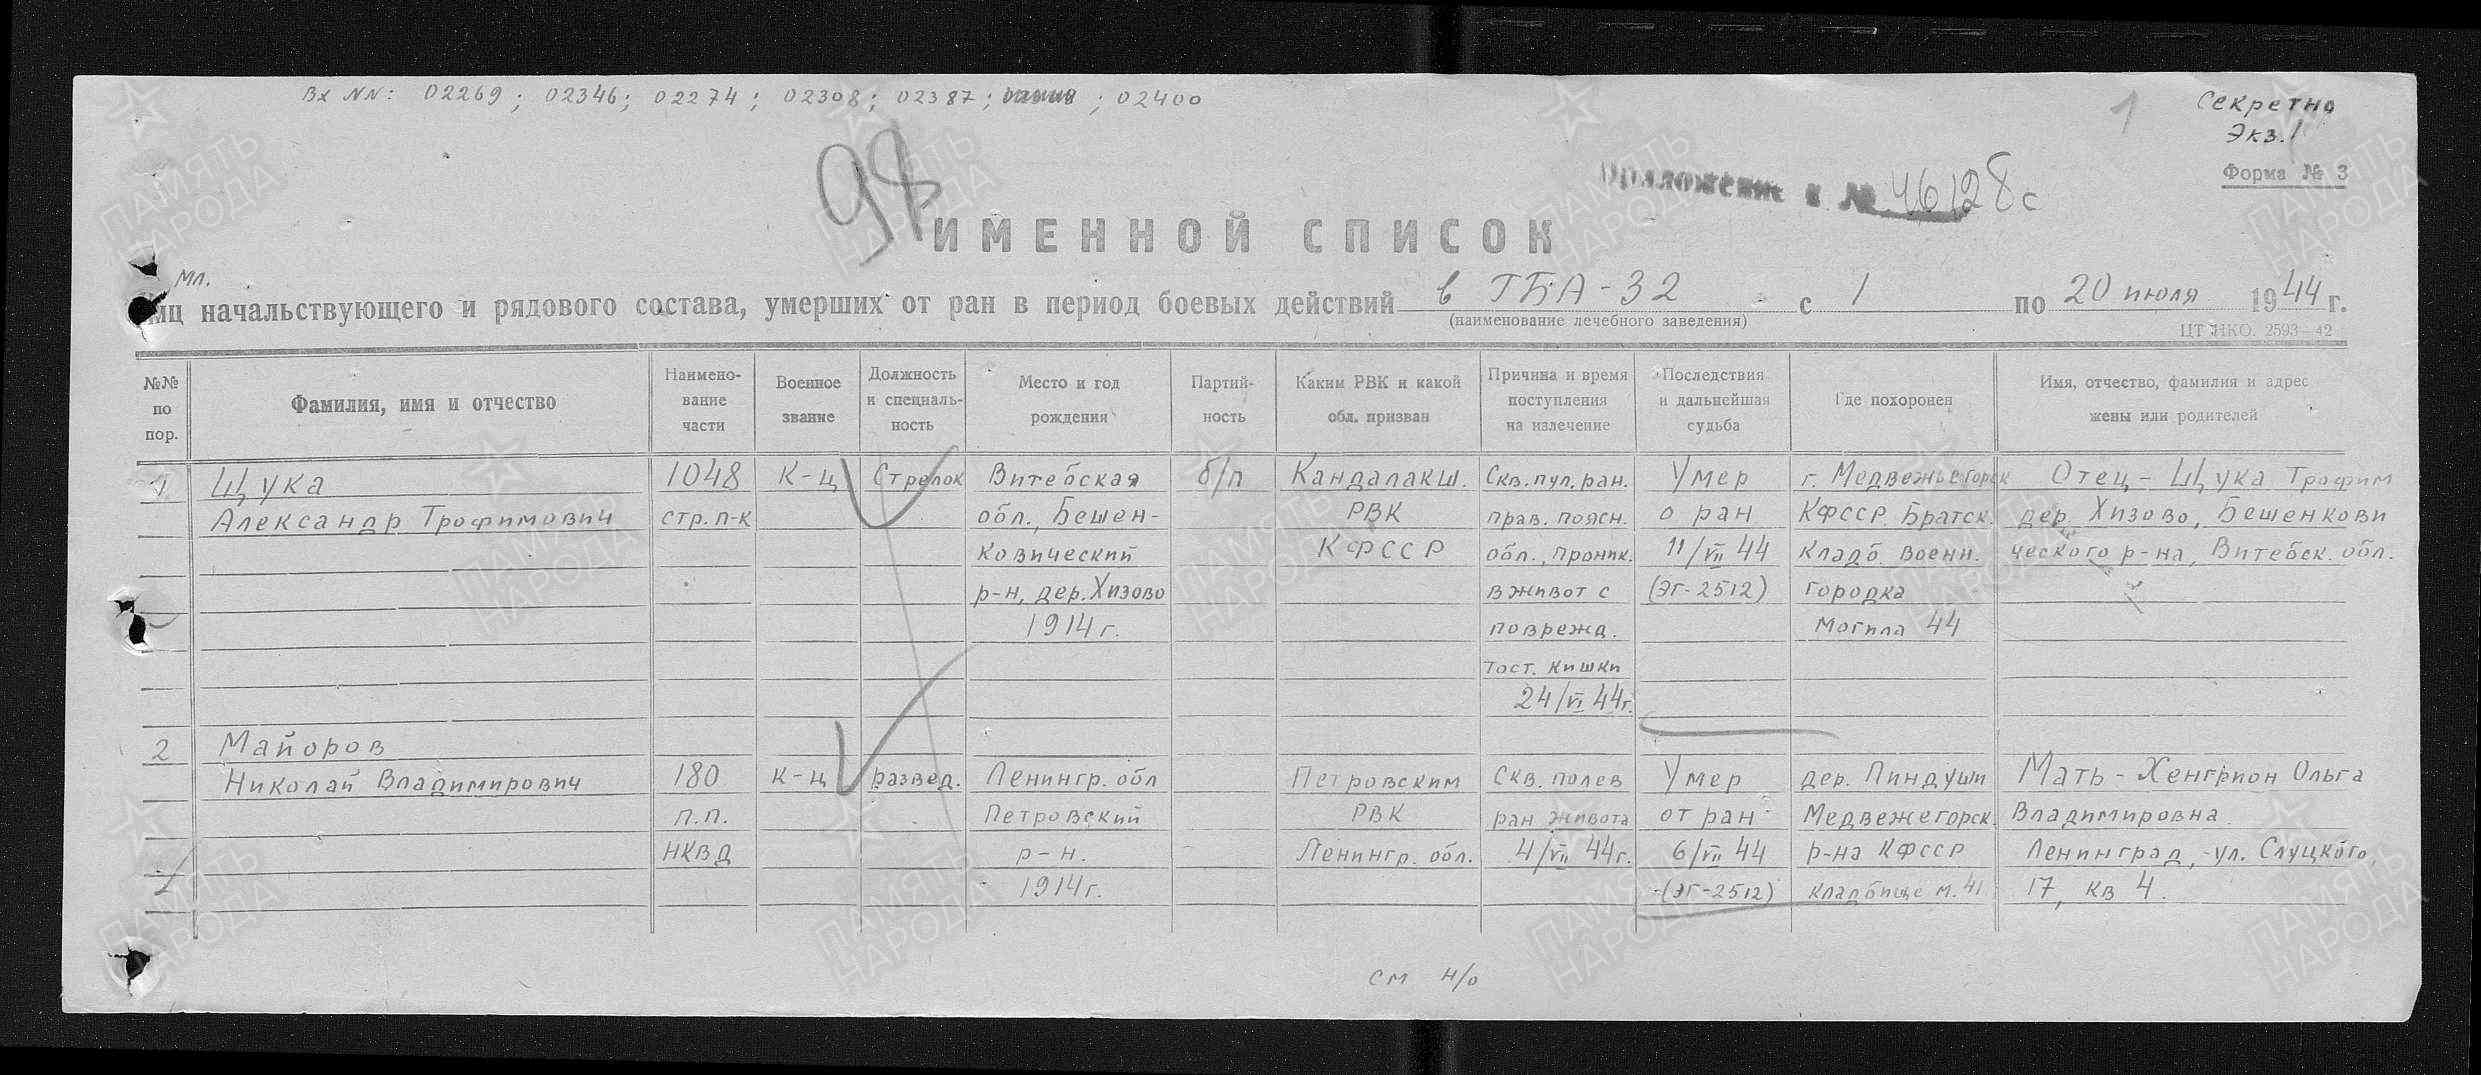 Вх NN: 02269; 02346; 02274; 02308; 02387; ; 02400
1
Секретно
Экз. 1
Форма № 3
98
Приложение к № 46128с
ИМЕННОЙ СПИСОК
мл.
лиц начальствующего и рядового состава, умерших от ран в период боевых действий в ГБА-32 с 1 по 20 июля 1944 г.
(наименование лечебного заведения)
ЦТ НКО. 2593—42
№№ по пор.
Фамилия, имя и отчество
Наимено-
вание
части
Военное
звание
Должность
и специаль-
ность
Место и год
рождения
Партий-
ность
Каким РВК и какой
обл. призван
Причина и время
поступления
на излечение
Последствия
и дальнейшая
судьба
Где похоронен
Имя, отчество, фамилия и адрес
жены или родителей
1
Щука
Александр Трофимович
1048
стр. п-к
к-ц
Стрелок
Витебская
обл., Бешен-
ковический
р-н, дер. Хизово
1914 г.
б/п
Кандалакш.
РВК
КФССР
Скв. пул. ран.
прав. поясн.
обл., проник.
в живот с
поврежд.
тост. кишки
24/VI 44г.
Умер
о ран
11/VII 44
(ЭГ-2512)
г. Медвежьегорск
КФССР. Братск.
кладб. воени.
городка
могила 44
Отец - Щука Трофим
дер. Хизово, Бешенкови
ческого р-на, Витебск. обл.
2
Майоров
Николай Владимирович
180
п.п.
НКВД
к-ц
развед.
Ленингр. обл
Петровский
р-н.
1914г.
Петровским
РВК
Ленингр. обл.
Скв. полев
ран живота
4/VII 44г.
Умер
от ран
6/VII 44
(ЭГ-2512)
дер. Пиндуши
Медвежегорск.
р-на КФССР
кладбище м. 41
Мать - Хенгрион Ольга
Владимировна
Ленинград, ул. Слуцкого,
17, кв 4.
см н/о